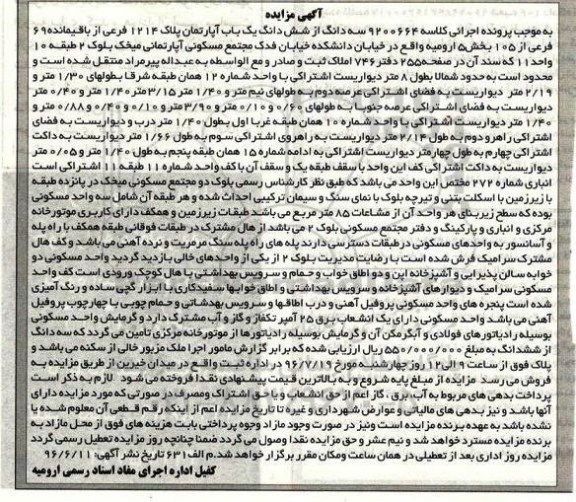 آگهی مزایده
به موجب پرونده اجرائی کلاسه ۹۲۰۰۶۶۴ سه دانگ از شش دانگ یک باب آپارتمان پلاک ۱۲۱۴ فرعی از باقیمانده ۶۹
فرعی از ۱۰۵ بخش ۵ ارومیه واقع در خیابان دانشکده خیابان فدک مجتمع مسکونی آپارتمانی میخک بلوک ۲ طبقه ۱۰
واحد ۱۱ که سند آن در صفحه ۲۵۵ دفتر ۷۴۶ املاک ثبت و صادر و مع الواسطه به عبداله پیرمراد منتقل شده است و
محدود است به حدود شمالا بطول ۸ متر دیواریست اشتراکی با واحد شماره ۱۲ همان طبقه شرقا بطولهای ۱/۳۰ متر و
۲/۱۹ متر دیواریست به فضای اشتراکی عرصه دوم به طولهای نیم متر و ۱/۴۰ متر ۳/۱۵ متر ۱/۴۰ متر و ۰/۴۰ متر
دیواریست به فضای اشتراکی عرصه جنوبا به طولهای ۰/۶۰ و ۰/۱۰ متر و ۳/۹۰ متر و ۰/۱۰ و ۰/۴۰ و ۰/۸۸ متر و
۱/۴۰ متر دیواریست اشتراکی با واحد شماره ۱۰ همان طبقه غربا اول بطول ۱/۴۰ متر درب و دیواریست به فضای
اشتراکی راهرو دوم به طول ۲/۱۴ متر دیواریست به راهروی اشتراکی سوم به طول ۱/۶۶ متر دیواریست به داکت
اشتراکی چهارم به طول چهار متر دیواریست اشتراکی به ادامه شماره ۱۵ همان طبقه پنجم به طول ۱/۴۰ متر و ۰/۰۵ متر
دیواریست به داکت اشتراکی کف این واحد با سقف طبقه یک و سقف آن با کف واحد شماره ۱۱ طبقه ۱۱ اشتراکی است
انباری شماره ۲۷۲ مختص این واحد می باشد که طبق نظر کارشناس رسمی بلوک دو مجتمع مسکونی میخک در پانزده طبقه
با زیرزمین با اسکلت بتنی و تیرچه بلوک با نمای سنگ و سیمان ترکیبی احداث شده و هر طبقه آن شامل سه واحد مسکونی
بوده که سطح زیربنای هر واحد آن از مشاعات ۸۵ متر مربع می باشد طبقات زیرزمین و همکف دارای کاربری موتورخانه
مرکزی و انباری و پارکینگ و دفتر مجتمع مسکونی بلوک ۲ می باشد از هال مشترک در طبقات فوقانی طبقه همکف با راه پله
و آسانسور به واحدهای مسکونی در طبقات دسترسی دارند پله های راه پله سنگ مرمریت و نرده آهنی می باشد و کف هال
مشترک سرامیک فرش شده است با رضایت مدیریت بلوک ۲ از یکی از واحدهای خالی بازدید گردید واحد مسکونی دو
خوابه سالن پذیرایی و آشپزخانه اپن و دو اطاق خواب و حمام و سرویس بهداشتی با هال کوچک ورودی است کف واحد
مسکونی سرامیک و دیوارهای آشپزخانه و سرویس بهداشتی و اطاق خوابها سفیدکاری با ابزار گچی ساده و رنگ آمیزی
شده است پنجره های واحد مسکونی پروفیل آهنی و درب اطاقها و سرویس بهداشتی و حمام چوبی با چهارچوب پروفیل
آهنی می باشد واحد مسکونی دارای یک انشعاب برق ۲۵ آمپر تکفاز و گاز و آب مشترک دارد و گرمایش واحد مسکونی
بوسیله رادیاتورهای فولادی و آبگرمکن آن و گرمایش بوسیله رادیاتورها از موتورخانه مرکزی تامین می گردد که سه دانگ
از ششدانگ به مبلغ ۵۵۰/۰۰۰/۰۰۰ ریال ارزیابی شده که برابر گزارش مامور اجرا ملک مزبور خالی از سکنه می باشد و
پلاک فوق از ساعت ۹ الی ۱۲ روز چهارشنبه مورخ ۹۶/۷/۱۹ در اداره ثبت واقع در میدان خیرین از طریق مزایده به
فروش می رسد مزایده از مبلغ پایه شروع و به بالاترین قیمت پیشنهادی نقداً فروخته می شود لازم به ذکر است
پرداخت بدهی های مربوط به آب، برق، گاز اعم از حق انشعاب و یا حق اشتراک و مصرف در صورتی که مورد مزایده دارای
آنها باشد و نیز بدهی های مالیاتی و عوارض شهرداری و غیره تا تاریخ مزایده اعم از اینکه رقم قطعی آن معلوم شده یا
نشده باشد به عهده برنده مزایده است ونیز در صورت وجود مازاد وجوه پرداختی بابت هزینه های فوق از محل مازاد به
برنده مزایده مسترد خواهد شد و نیم عشر و حق مزایده نقدا وصول می گردد ضمنا چنانچه روز مزایده تعطیل رسمی گردد
مزایده روز اداری بعد از تعطیلی در همان ساعت ومکان مقرر برگزار خواهد شد.م الف ۶۳۱ تاریخ نشر آگهی: ۹۶/۶/۱۱
کفیل اداره اجرای مفاد اسناد رسمی ارومیه